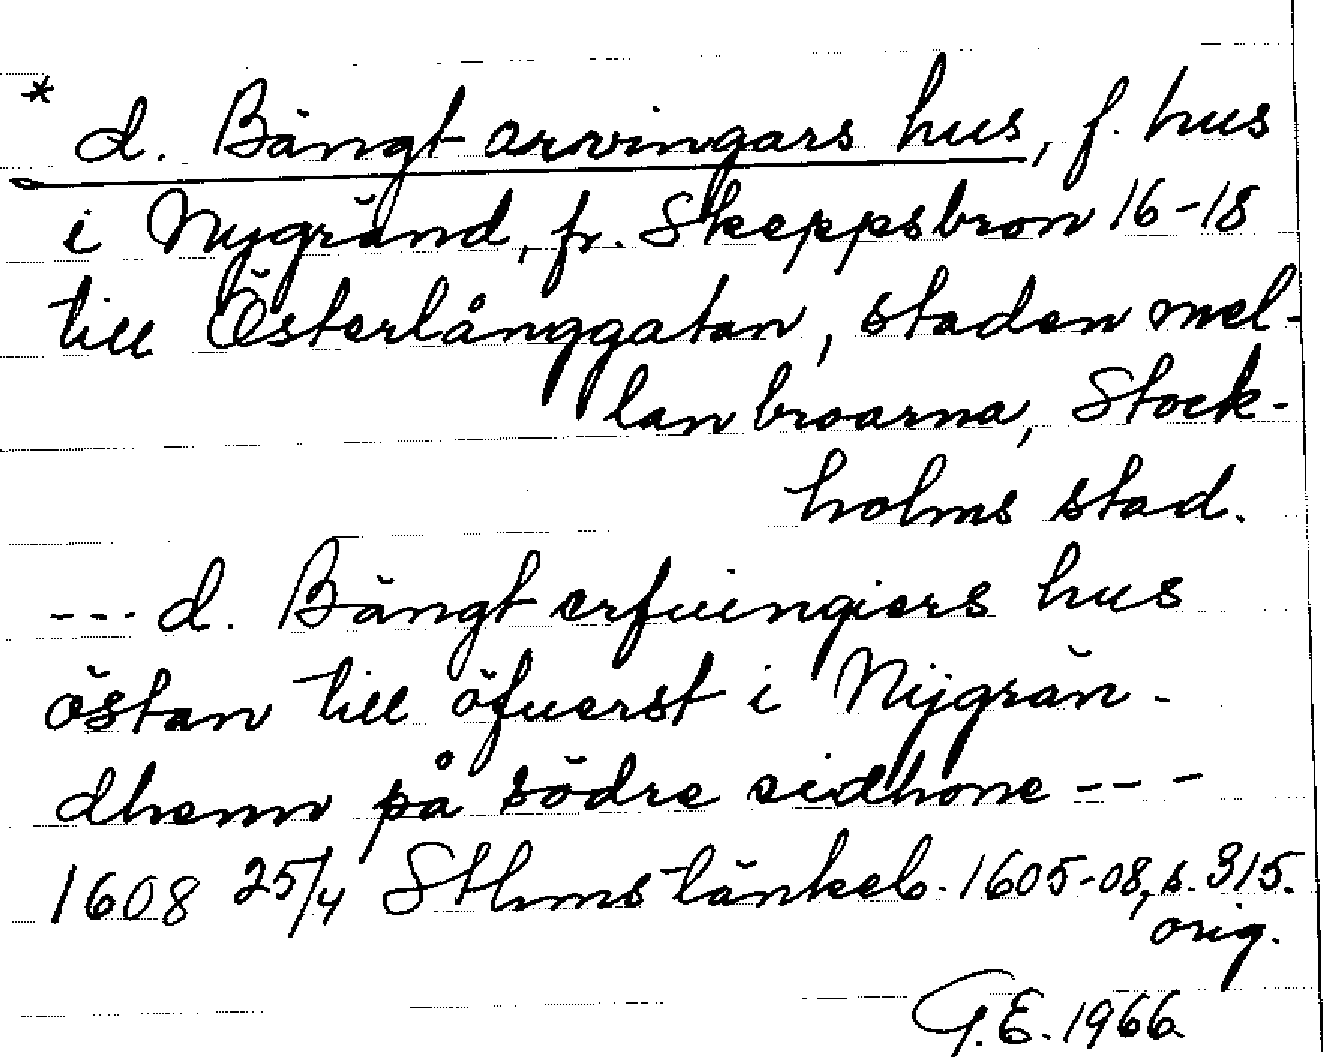 * d. Bängt arvingars hus, f. hus
i Nygränd, fr. Skeppsbron 16-18
till Österlånggatan, staden mel-
lan broarna, Stock-
holms stad.
--- d. Bängt erfuingiers hus
östan till öfuerst i Nijgrän-
dhenn på södre sidhone ---
1608 25/4 Sthms tänkeb. 1605-08, s. 315.
orig.
G.E. 1966